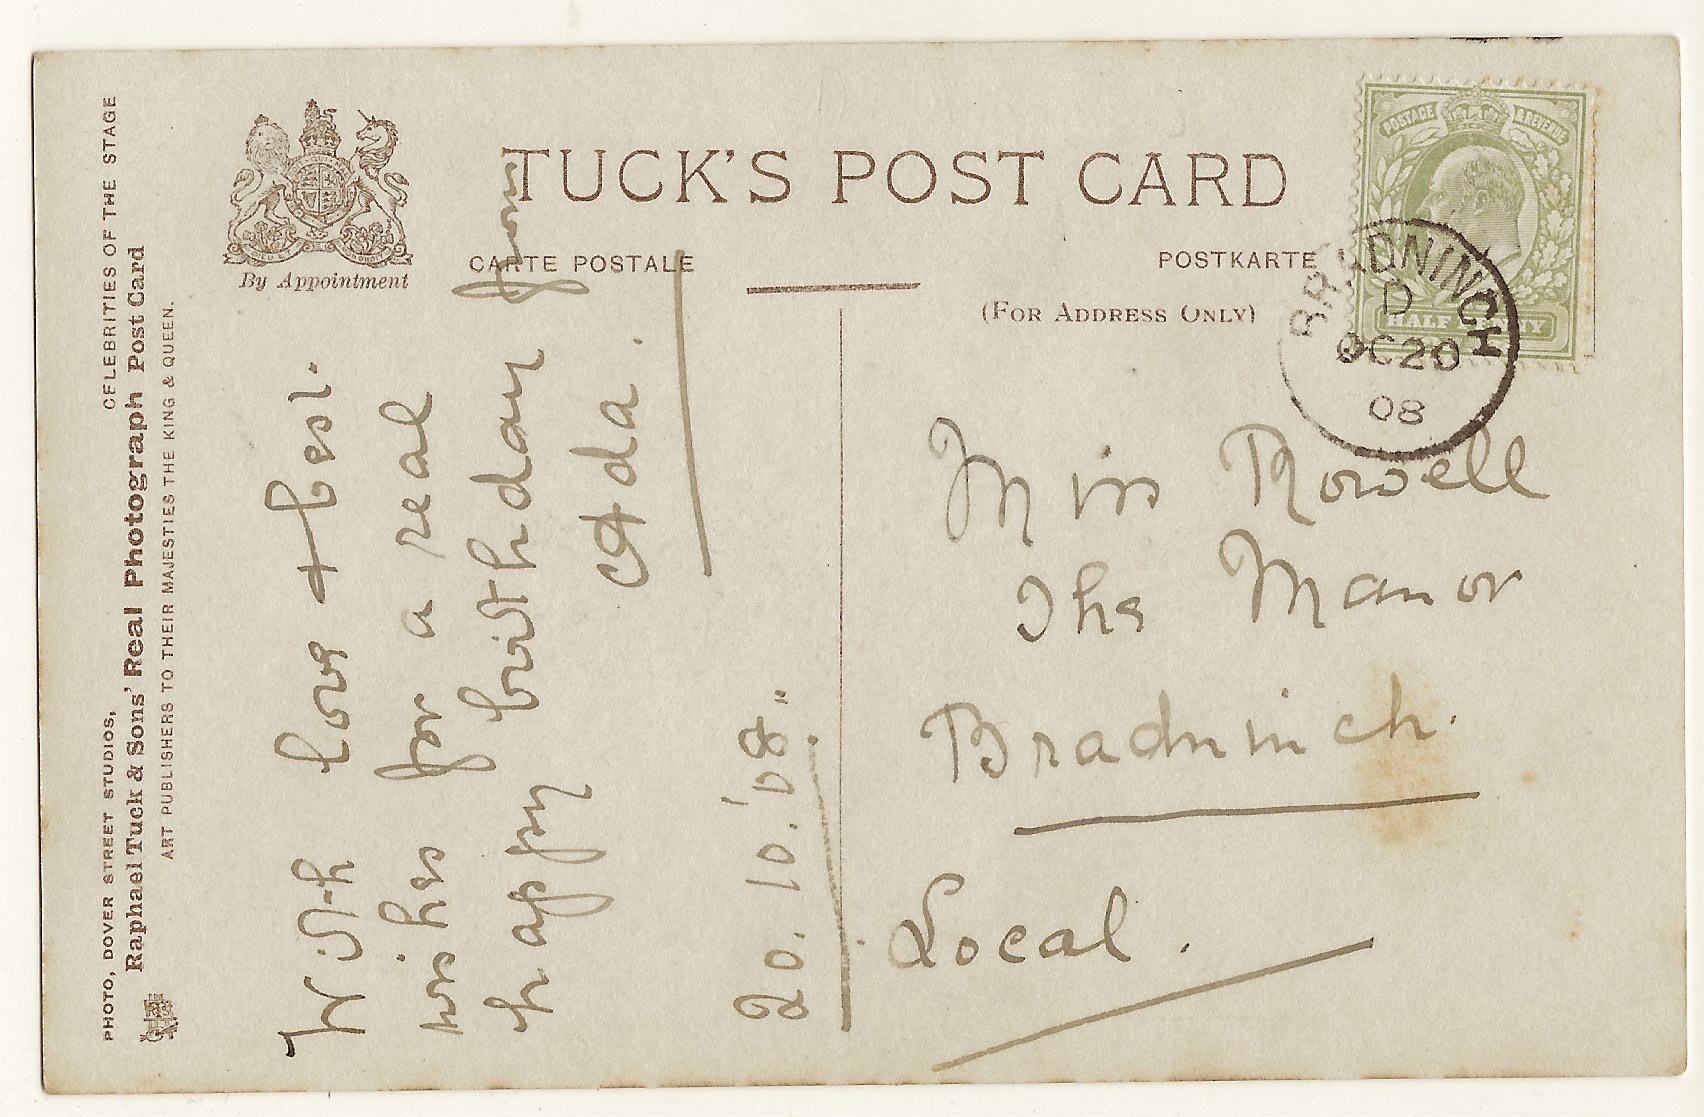 PHOTO, DOVER STREET STUDIOS, CELEBRITIES OF THE STAGE
Raphael Tuck & Sons' Real Photograph Post Card
ART PUBLISHERS TO THEIR MAJESTIES THE KING & QUEEN.
By Appointment
TUCK'S POST CARD
CARTE POSTALE
POSTKARTE
(FOR ADDRESS ONLY)
POSTAGE & REVENUE
HALF PENNY
BRADNINCH
D
OC 20
08
With love + best
wishes for a real
happy birthday from
Ada.
20.10.'08.
Miss Rowell
The Manor
Bradninch.
Local.